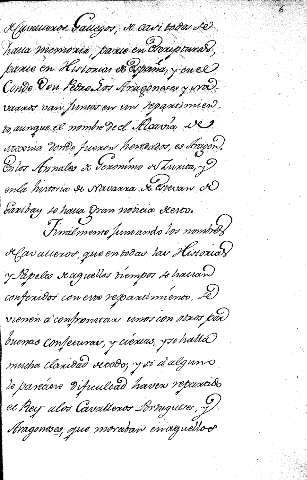 6
de Cavalleros Gallegos, de casi todas se
haya memoria, parte en Escripturas,
parte en Historias de España, y en el
Conde Don Pedro. Los Aragoneses y Na
varros van juntos en un repartimien
to, aunque el nombre de el Alcaria de
donde fueron heredados, es Aragon.
En los Annales de Geronimo de Zurita, y
en la historia de Navarra, de Estevan de
Garibay se haya gran noticia de esto.
Finalmente sumando los nombres
de Cavalleros, que en todas las Historias
y Papeles de aquellos tiempos se hallan
conferidos con este repartimiento. Se
vienen á confrontar unos con otros por
buenas conjeturas, y ciertas, y se halla
mucha claridad de todo, y si á alguno
le pareciere dificultad haver repartido
el Rey a los Cavalleros Portugueses, y
Aragoneses, que moraban en aquellos